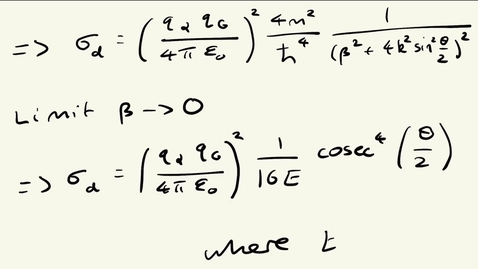 => σ_d = (q_d q_G / 4π ε₀)² 4m²/ħ⁴ 1/(β² + 4k² sin² θ/2)²
Limit β -> 0
=> σ_d = (q_d q_G / 4π ε₀)² 1/16E cosec⁴ (θ/2)
where E